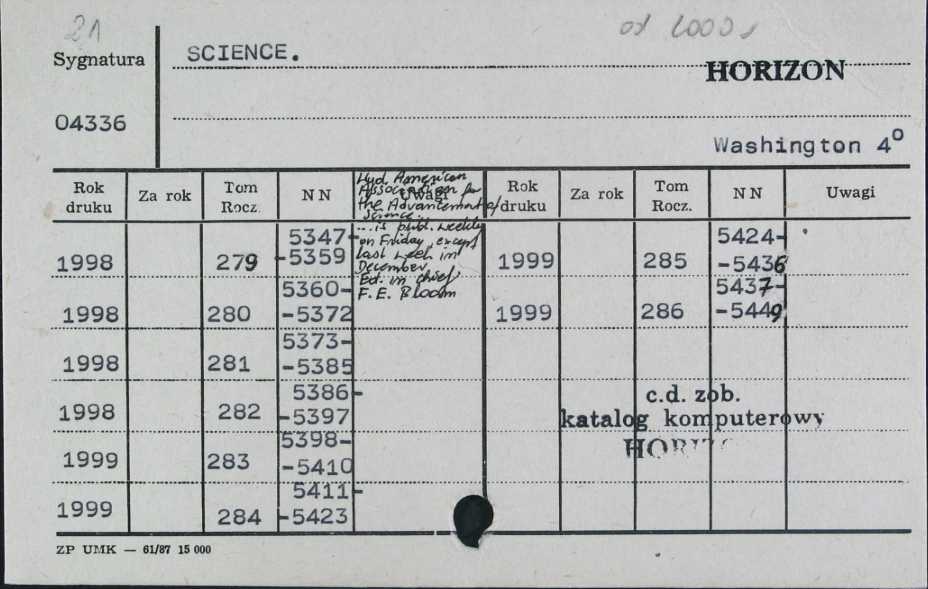 21
od 2000 r
Sygnatura
SCIENCE.
HORIZON
04336
Washington 4°
Rok druku Za rok Tom Rocz. N N Uwagi Rok druku Za rok Tom Rocz. N N Uwagi
Wyd. American
Association for
the Advancement of
Science.
...is publ. weekly
on Friday, except
last week in
December.
Ed. in chief
F. E. Bloom
1998 279 5347-
-5359
1998 280 5360-
-5372
1998 281 5373-
-5385
1998 282 5386-
-5397
1999 283 5398-
-5410
1999 284 5411-
-5423
1999 285 5424-
-5436
1999 286 5437-
-5449
c.d. zob.
katalog komputerowy
HORIZO
ZP UMK — 61/87 15 000